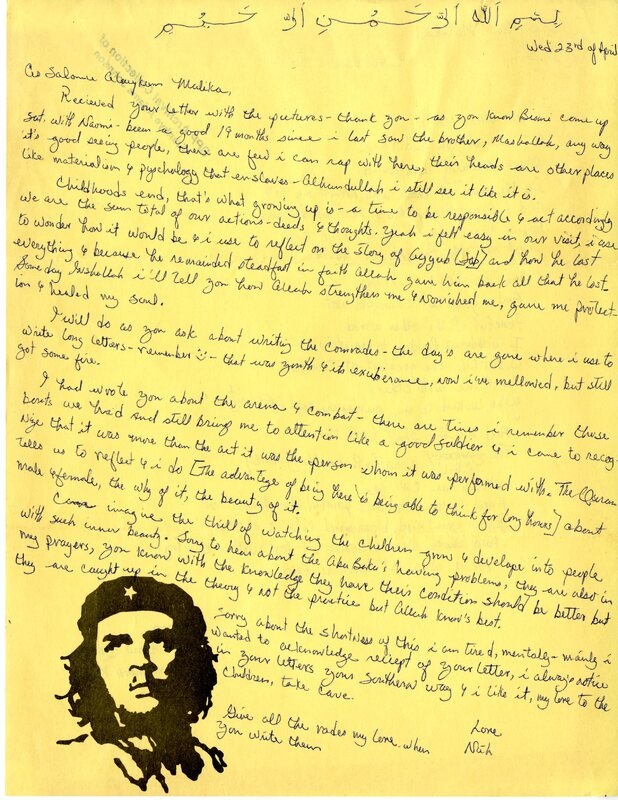 بسم الله الرحمن الرحيم
Wed 23rd of April
As Salamu Alaykum Malika,
Recieved your letter with the pictures - thank you - as you know Bismi come up
sat. with Naomi - been a good 19 months since i last saw the brother, Mashallah, any way
it's good seeing people, there are few i can rap with here, their heads are other places
like materialism & Pyschology that enslaves - Alhumdullah i still see it like it is.
Childhoods end, that's what growing up is - a time to be responsible & act accordingly
we are the sum total of our actions - deeds & thoughts. Yeah i felt easy in our visit, i use
to wonder how it would be & i use to reflect on the story of Ayyub (Job) and how he lost
everything & because he remainded steadfast in faith Allah gave him back all that he lost -
Someday Inshallah i'll tell you how Allah strengthens me & nourished me, gave me protect-
ion & healed my soul.
I will do as you ask about writing the comrades - the day's are gone where i use to
write long letters - remember - that was youth & its exuberance, now i've mellowed, but still
got some fire.
I had wrote you about the arena & combat - there are times i remember those
bouts we had and still bring me to attention like a good soldier & i came to recog-
nize that it was more than the act it was the person whom it was performed with. The Quran
tells us to reflect & i do [The advantage of being here is being able to think for long hours] about
male & female, the why of it, the beauty of it.
imagine the thrill of watching the children grow & develope into people
with such inner beauty. Sorry to hear about the Abu Bakr's having problems, they are also in
my prayers, you know with the knowledge they have their condition should be better but
they are caught up in the theory & not the practice but Allah know's best.
Sorry about the shortness of this i am tired, mentally - mainly i
wanted to acknowledge reciept of your letter, i always notice
in your letters your Southern way & i like it, my love to the
Children, take care.
Give all the rades my love when
you write them
Love
Nuh